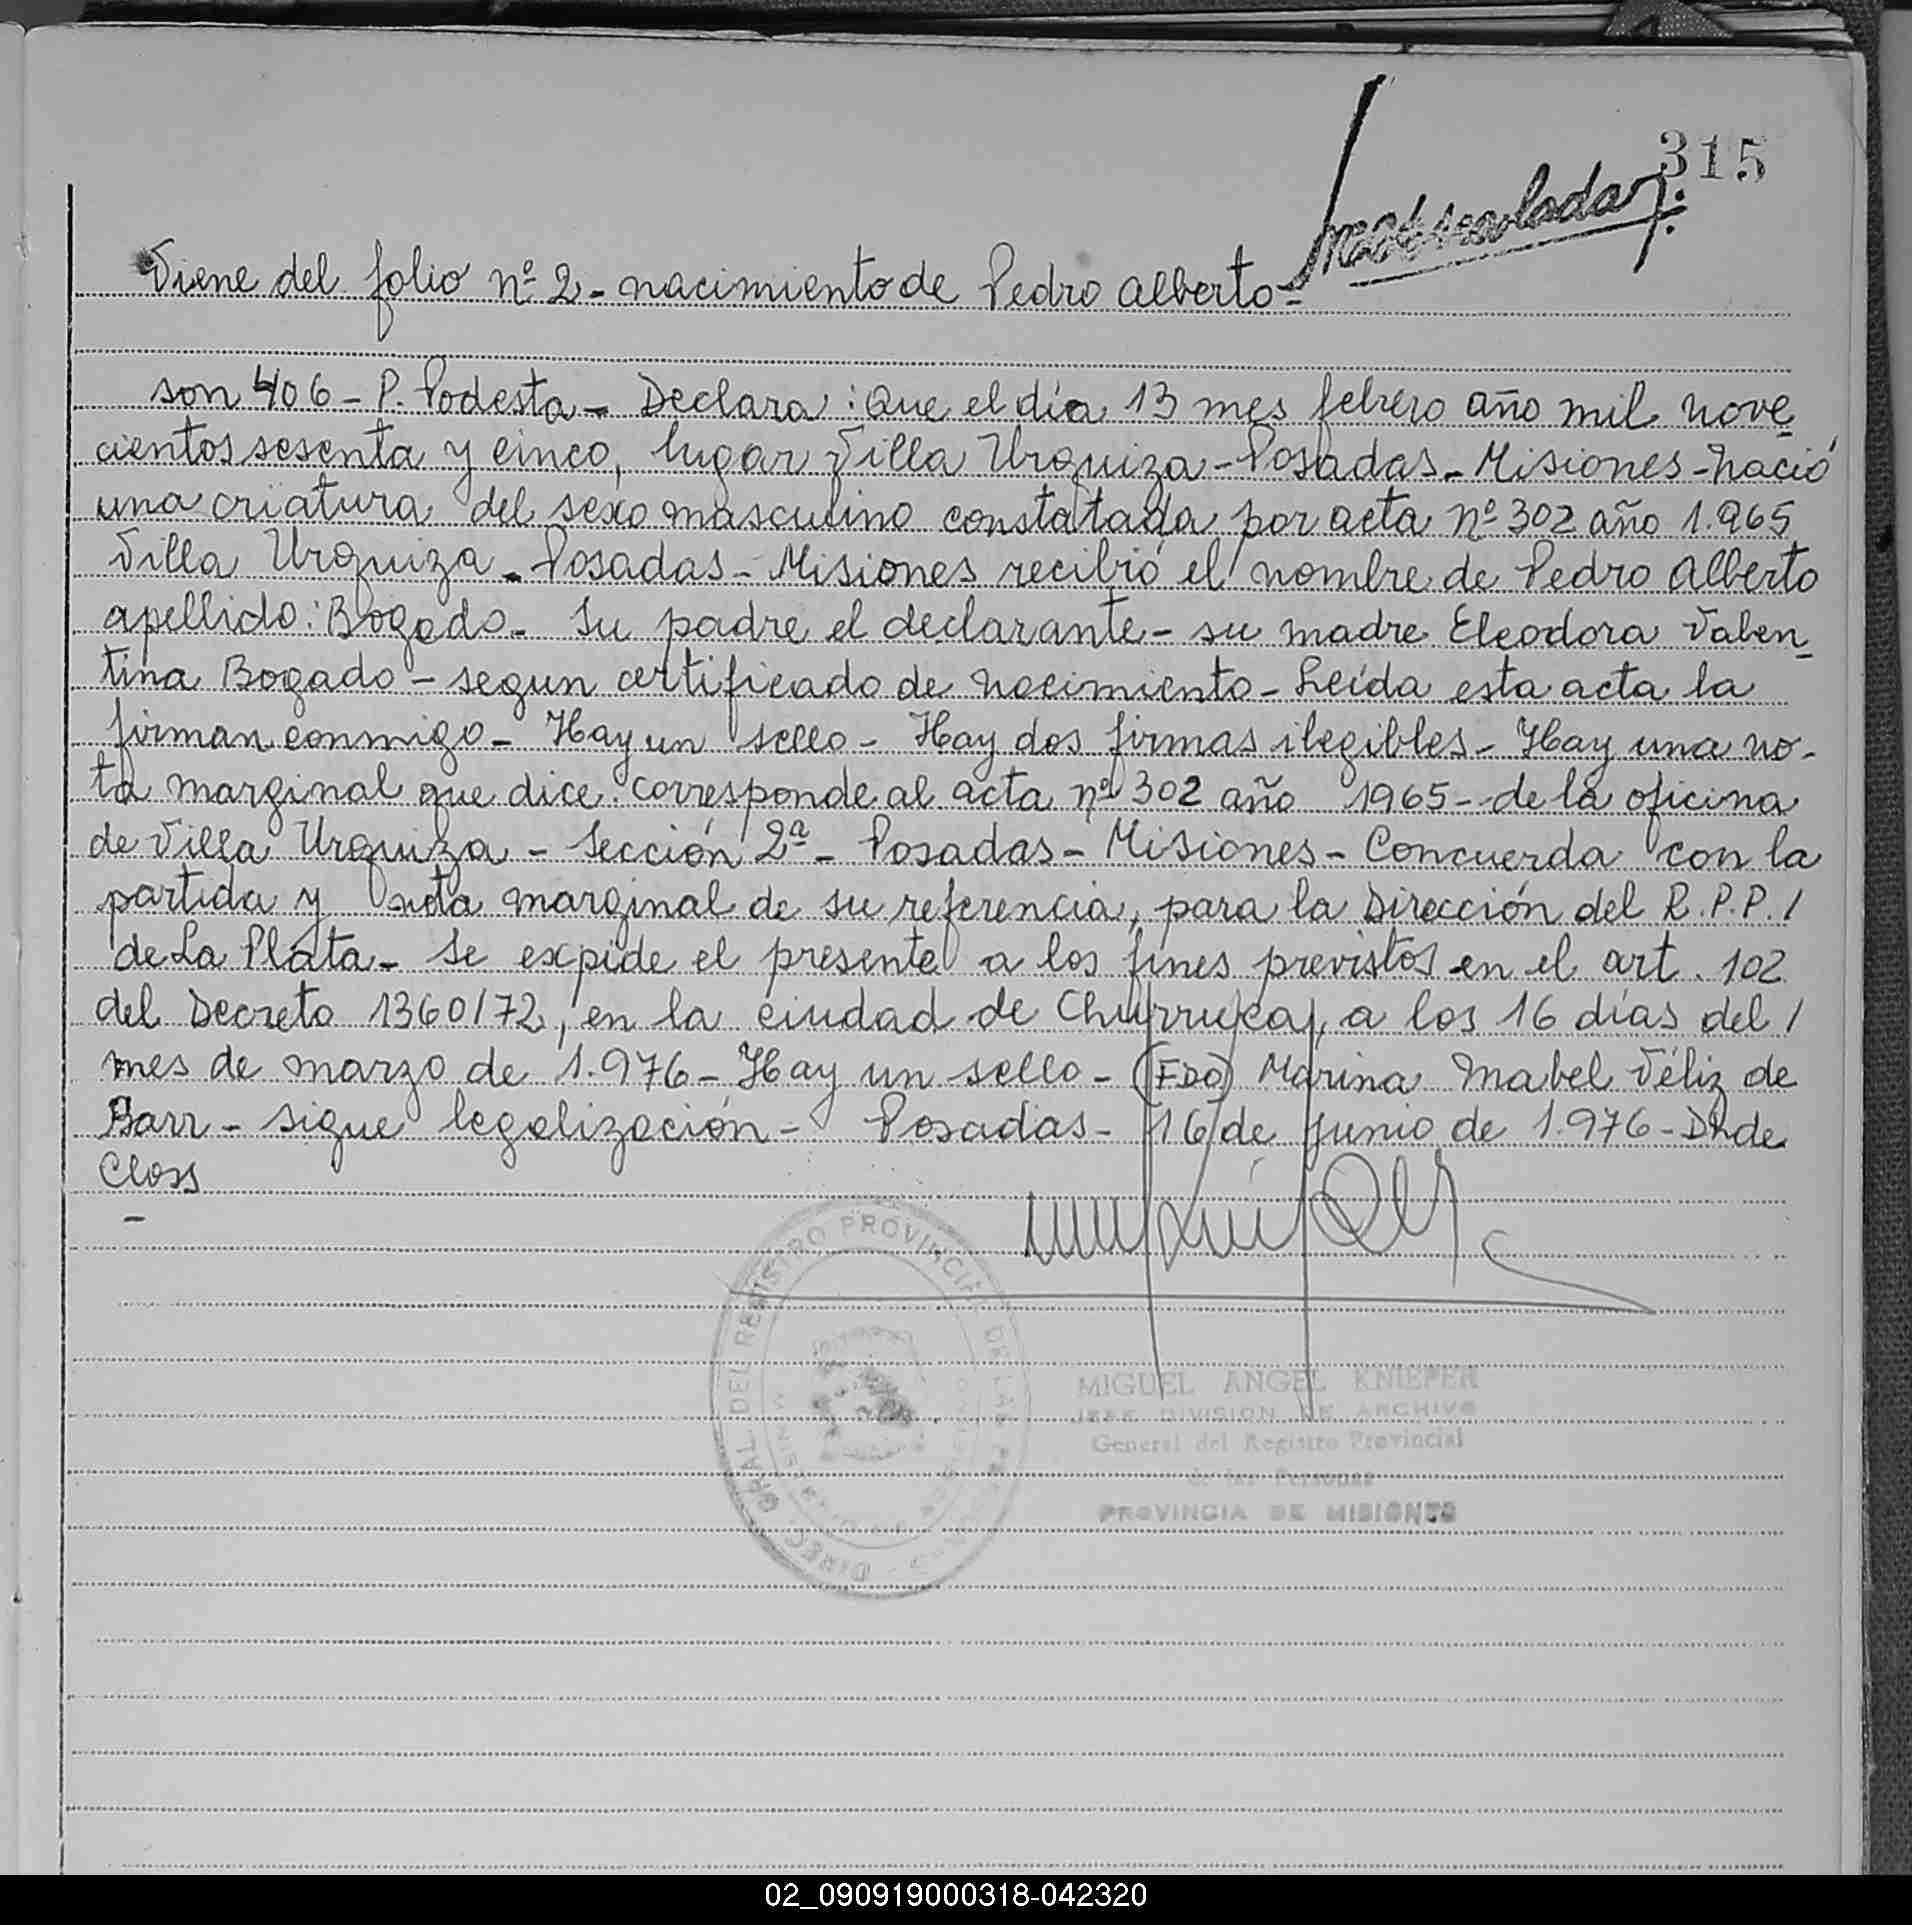 315
Matriculada
Viene del folio nº 2 - nacimiento de Pedro Alberto -
son 406 - P. Podesta - Declara: Que el día 13 mes febrero año mil nove
cientos sesenta y cinco, lugar Villa Urquiza - Posadas - Misiones - nació
una criatura del sexo masculino constatada por acta nº 302 año 1.965
Villa Urquiza - Posadas - Misiones recibió el nombre de Pedro Alberto
apellido: Bogado - Su padre el declarante - su madre Eleodora Valen-
tina Bogado - segun certificado de nacimiento - Leída esta acta la
firman conmigo - Hay un sello - Hay dos firmas ilegibles - Hay una no-
ta marginal que dice: corresponde al acta nº 302 año 1965 - de la oficina
de Villa Urquiza - Sección 2ª - Posadas - Misiones - Concuerda con la
partida y nota marginal de su referencia, para la Dirección del R.P.P. /
de La Plata - Se expide el presente a los fines previstos en el art. 102
del Decreto 1360/72, en la ciudad de Churruca, a los 16 días del /
mes de marzo de 1.976 - Hay un sello - (FDO) Marina Mabel Véliz de
Barr - sigue legalización - Posadas - 16 de junio de 1.976 - DR de
Closs
DIREC. GRAL. DEL REGISTRO PROVINCIAL DE LAS PERSONAS
MISIONES
MIGUEL ANGEL KNIEPER
JEFE DIVISION DE ARCHIVO
General del Registro Provincial
de las Personas
PROVINCIA DE MISIONES
02_090919000318-042320